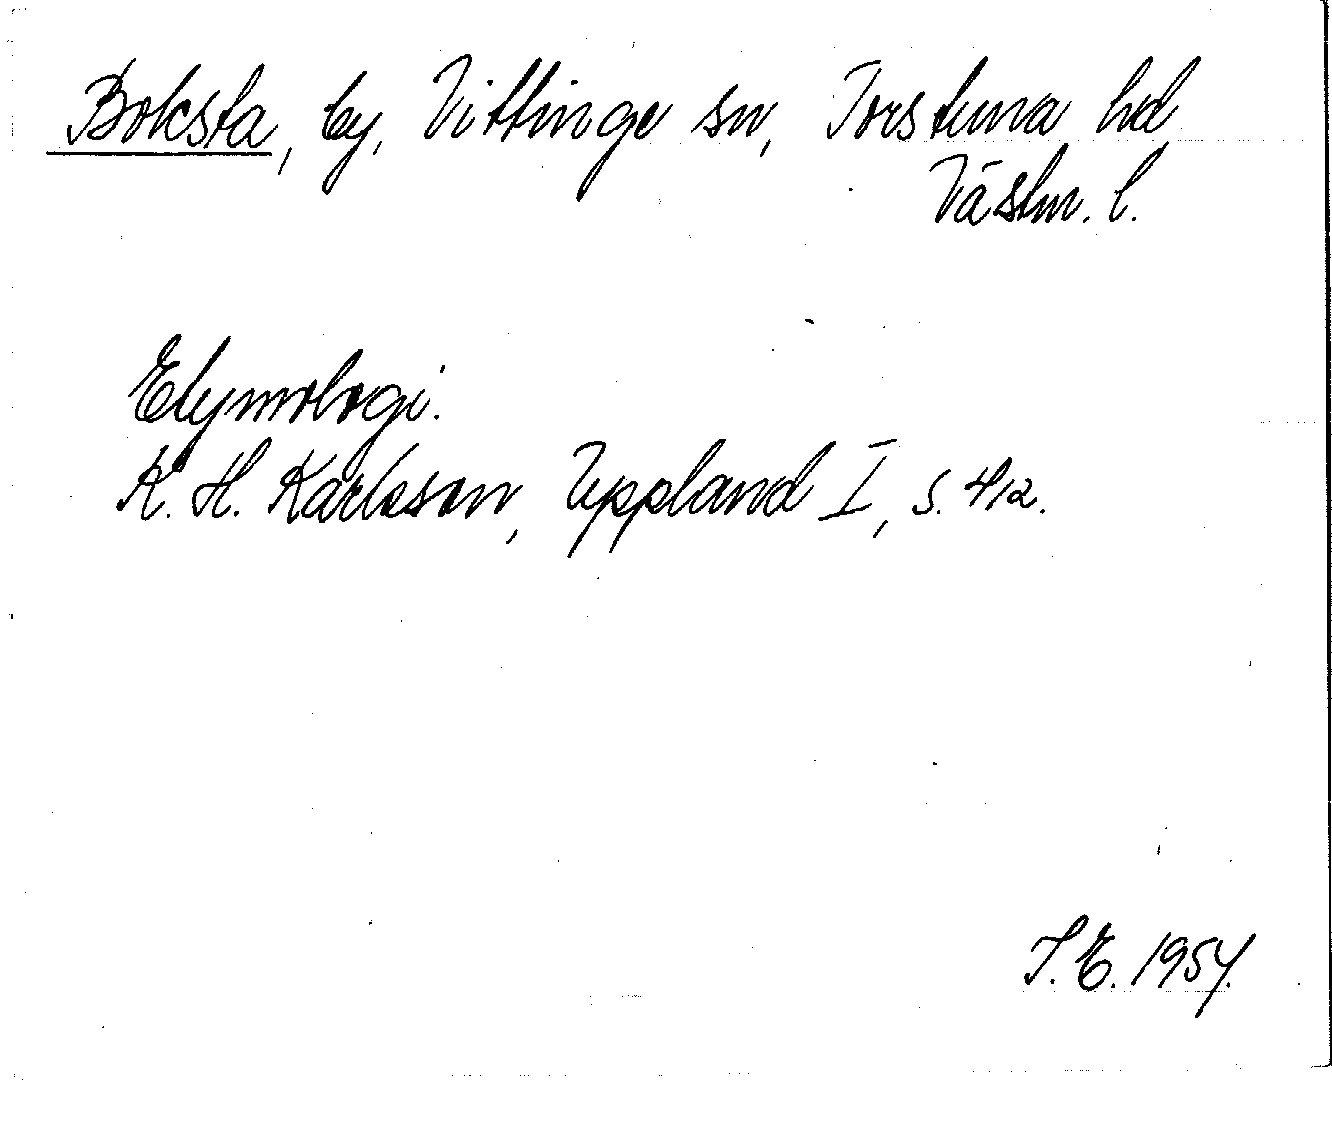 Boksta, by, Vittinge sn, Torstuna hd
Västm. l.
Etymologi.
K. H. Karlsson, Uppland I, s. 412.
S. E. 1954.